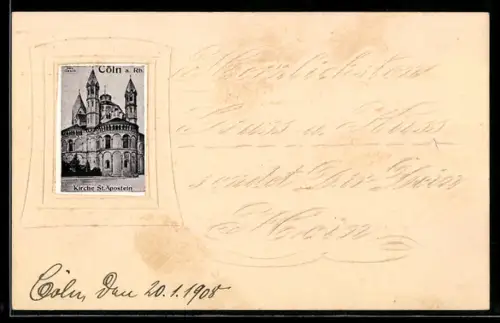 Cöln a. Rh.
Kirche St. Aposteln
Herzlichsten
Gruss u. Kuss
sendet Dir Dein
Cöln, den 20.1.1908